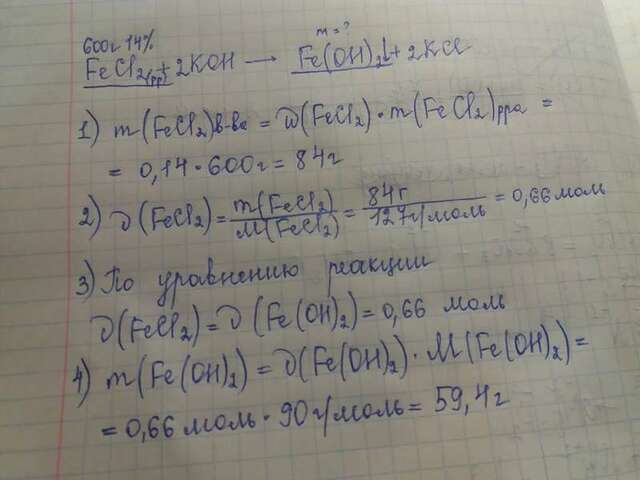 600г 14% m = ?
FeCl₂(рр) + 2KOH → Fe(OH)₂↓ + 2KCl
1) m(FeCl₂)в-ва = ω(FeCl₂) · m(FeCl₂)рра =
= 0,14 · 600г = 84г
2) ν(FeCl₂) = m(FeCl₂)/M(FeCl₂) = 84г/127г/моль = 0,66 моль
3) По уравнению реакции
ν(FeCl₂) = ν(Fe(OH)₂) = 0,66 моль
4) m(Fe(OH)₂) = ν(Fe(OH)₂) · M(Fe(OH)₂) =
= 0,66 моль · 90г/моль = 59,4г